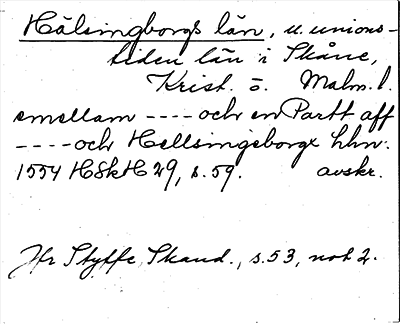 Hälsingborgs län, u. unions-
tiden län i Skåne,
Krist. o. Malm. l.
emellam ---- och en Partt aff
---- och Hellsingeborgx lhn.
1554 HSkH 29, s. 59. avskr.
Jfr Styffe, Skand., s. 53, not 2.